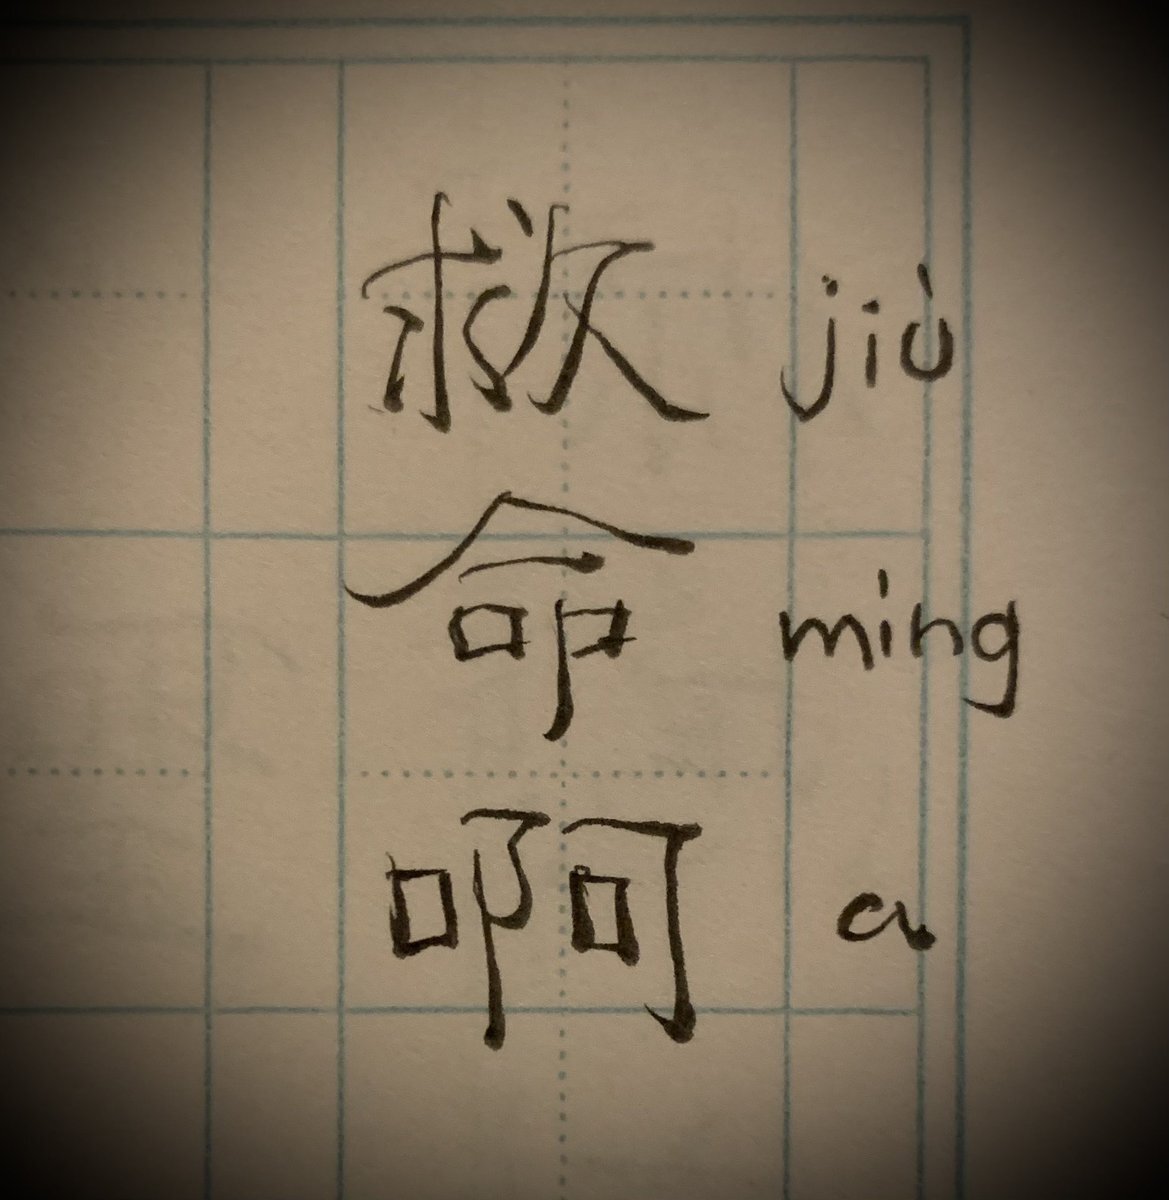 救 jiù
命 mìng
啊 a